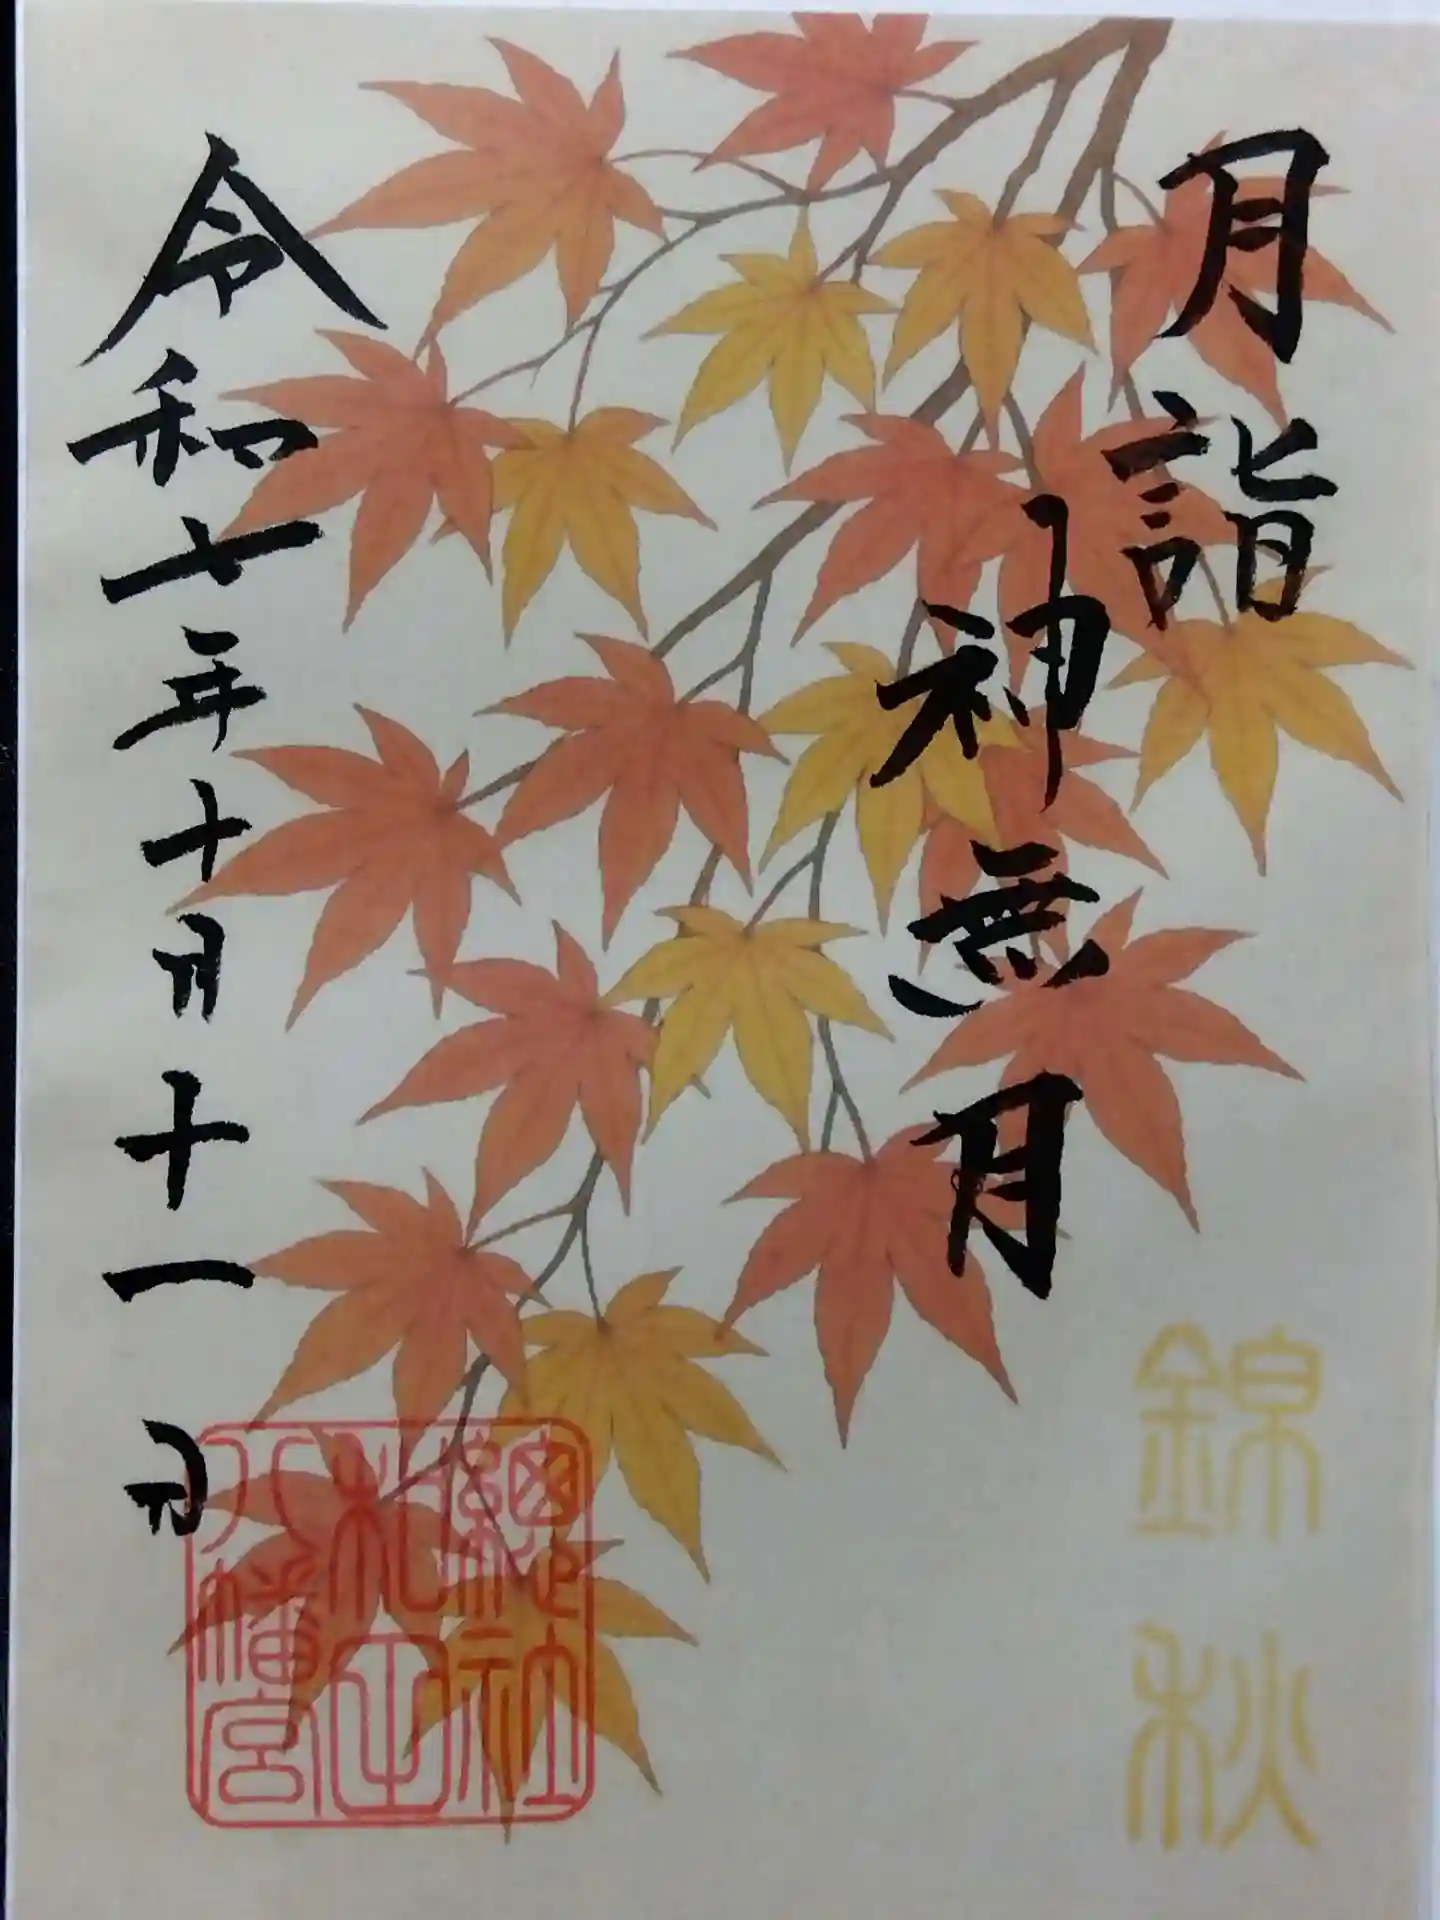 月詣
神無月
錦秋
令和七年十月十一日
總社
八幡宮